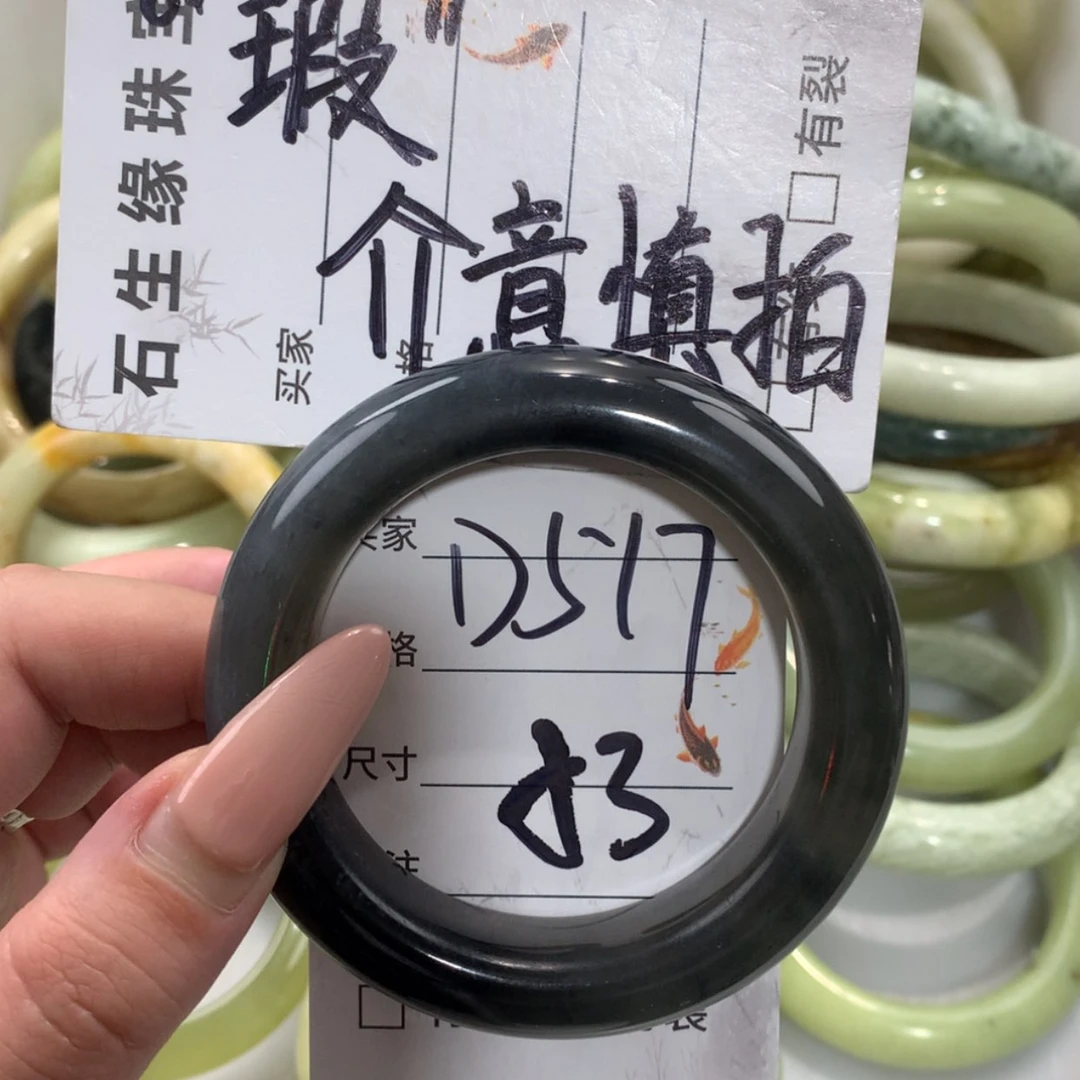 石生缘珠宝
瑕
介意慎拍
有裂
买家
格
买家
D517
格
尺寸
53
注